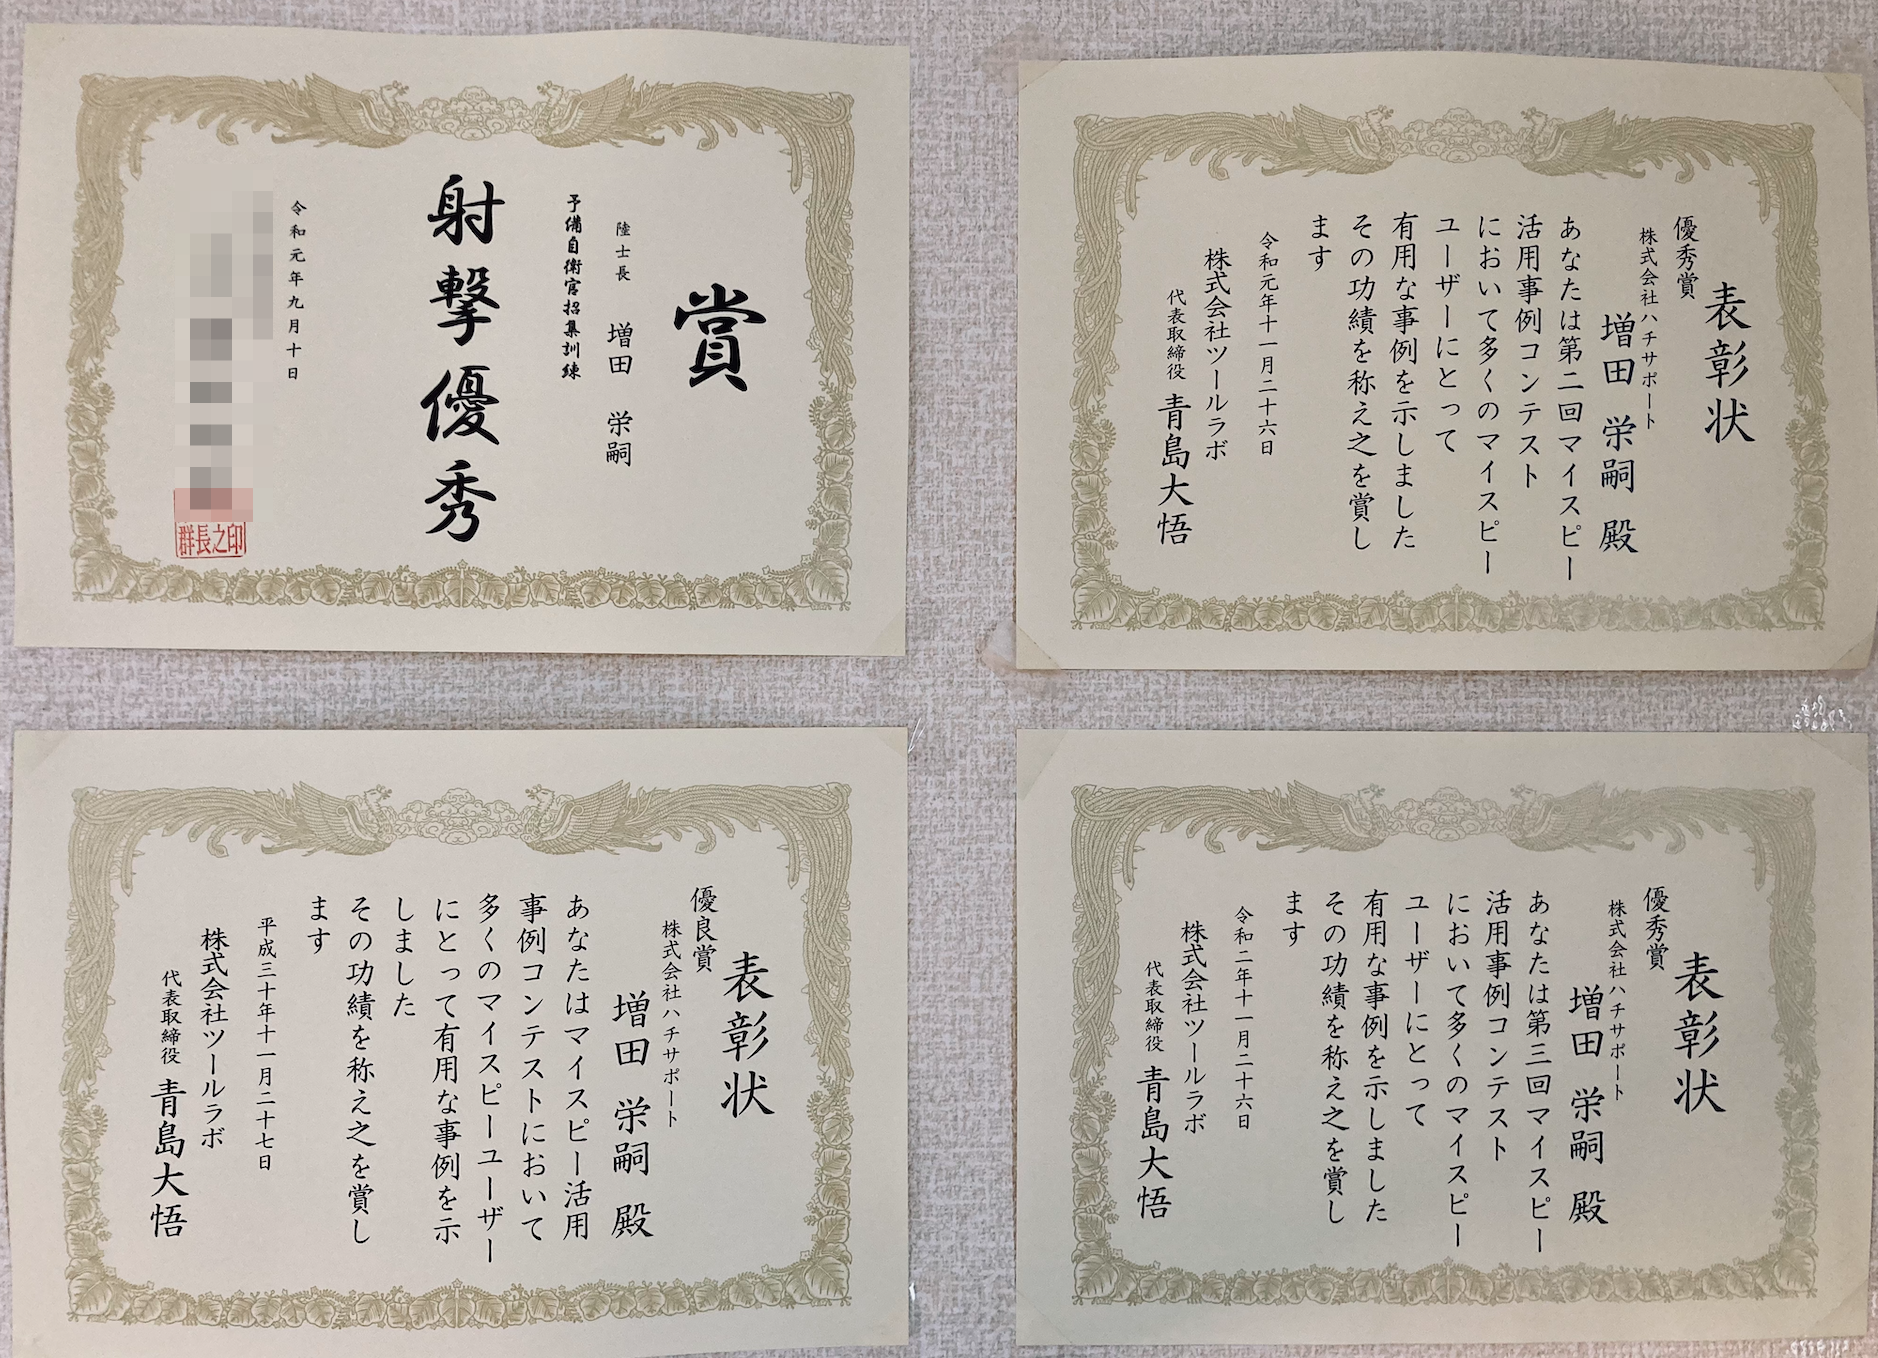 賞
陸士長 増田 栄嗣
予備自衛官招集訓練
射撃優秀
令和元年九月十日
群長之印
表彰状
優秀賞
株式会社ハチサポート
増田 栄嗣 殿
あなたは第二回マイスピー
活用事例コンテスト
において多くのマイスピー
ユーザーにとって
有用な事例を示しました
その功績を称え之を賞し
ます
令和元年十一月二十六日
株式会社ツールラボ
代表取締役 青島大悟
表彰状
優良賞
株式会社ハチサポート
増田 栄嗣 殿
あなたはマイスピー活用
事例コンテストにおいて
多くのマイスピーユーザー
にとって有用な事例を示
しました
その功績を称え之を賞し
ます
平成三十年十一月二十七日
株式会社ツールラボ
代表取締役 青島大悟
表彰状
優秀賞
株式会社ハチサポート
増田 栄嗣 殿
あなたは第三回マイスピー
活用事例コンテスト
において多くのマイスピー
ユーザーにとって
有用な事例を示しました
その功績を称え之を賞し
ます
令和二年十一月二十六日
株式会社ツールラボ
代表取締役 青島大悟